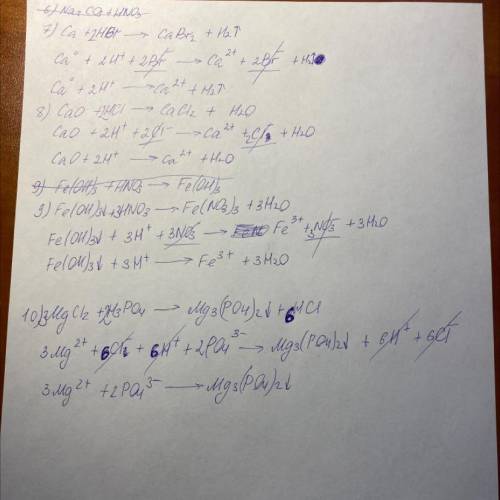 6) Na2CO3 + HNO3
7) Ca + 2HBr → CaBr2 + H2↑
Ca⁰ + 2H⁺ + 2Br⁻ → Ca²⁺ + 2Br⁻ + H2
Ca⁰ + 2H⁺ → Ca²⁺ + H2↑
8) CaO + 2HCl → CaCl2 + H2O
CaO + 2H⁺ + 2Cl⁻ → Ca²⁺ + 2Cl⁻ + H2O
CaO + 2H⁺ → Ca²⁺ + H2O
9) Fe(OH)3 + HNO3 → Fe(OH)3
9) Fe(OH)3↓ + 3HNO3 → Fe(NO3)3 + 3H2O
Fe(OH)3↓ + 3H⁺ + 3NO3⁻ → Fe³⁺ + 3NO3⁻ + 3H2O
Fe(OH)3↓ + 3H⁺ → Fe³⁺ + 3H2O
10) 3MgCl2 + 2H3PO4 → Mg3(PO4)2↓ + 6HCl
3Mg²⁺ + 6Cl⁻ + 6H⁺ + 2PO4³⁻ → Mg3(PO4)2↓ + 6H⁺ + 6Cl⁻
3Mg²⁺ + 2PO4³⁻ → Mg3(PO4)2↓